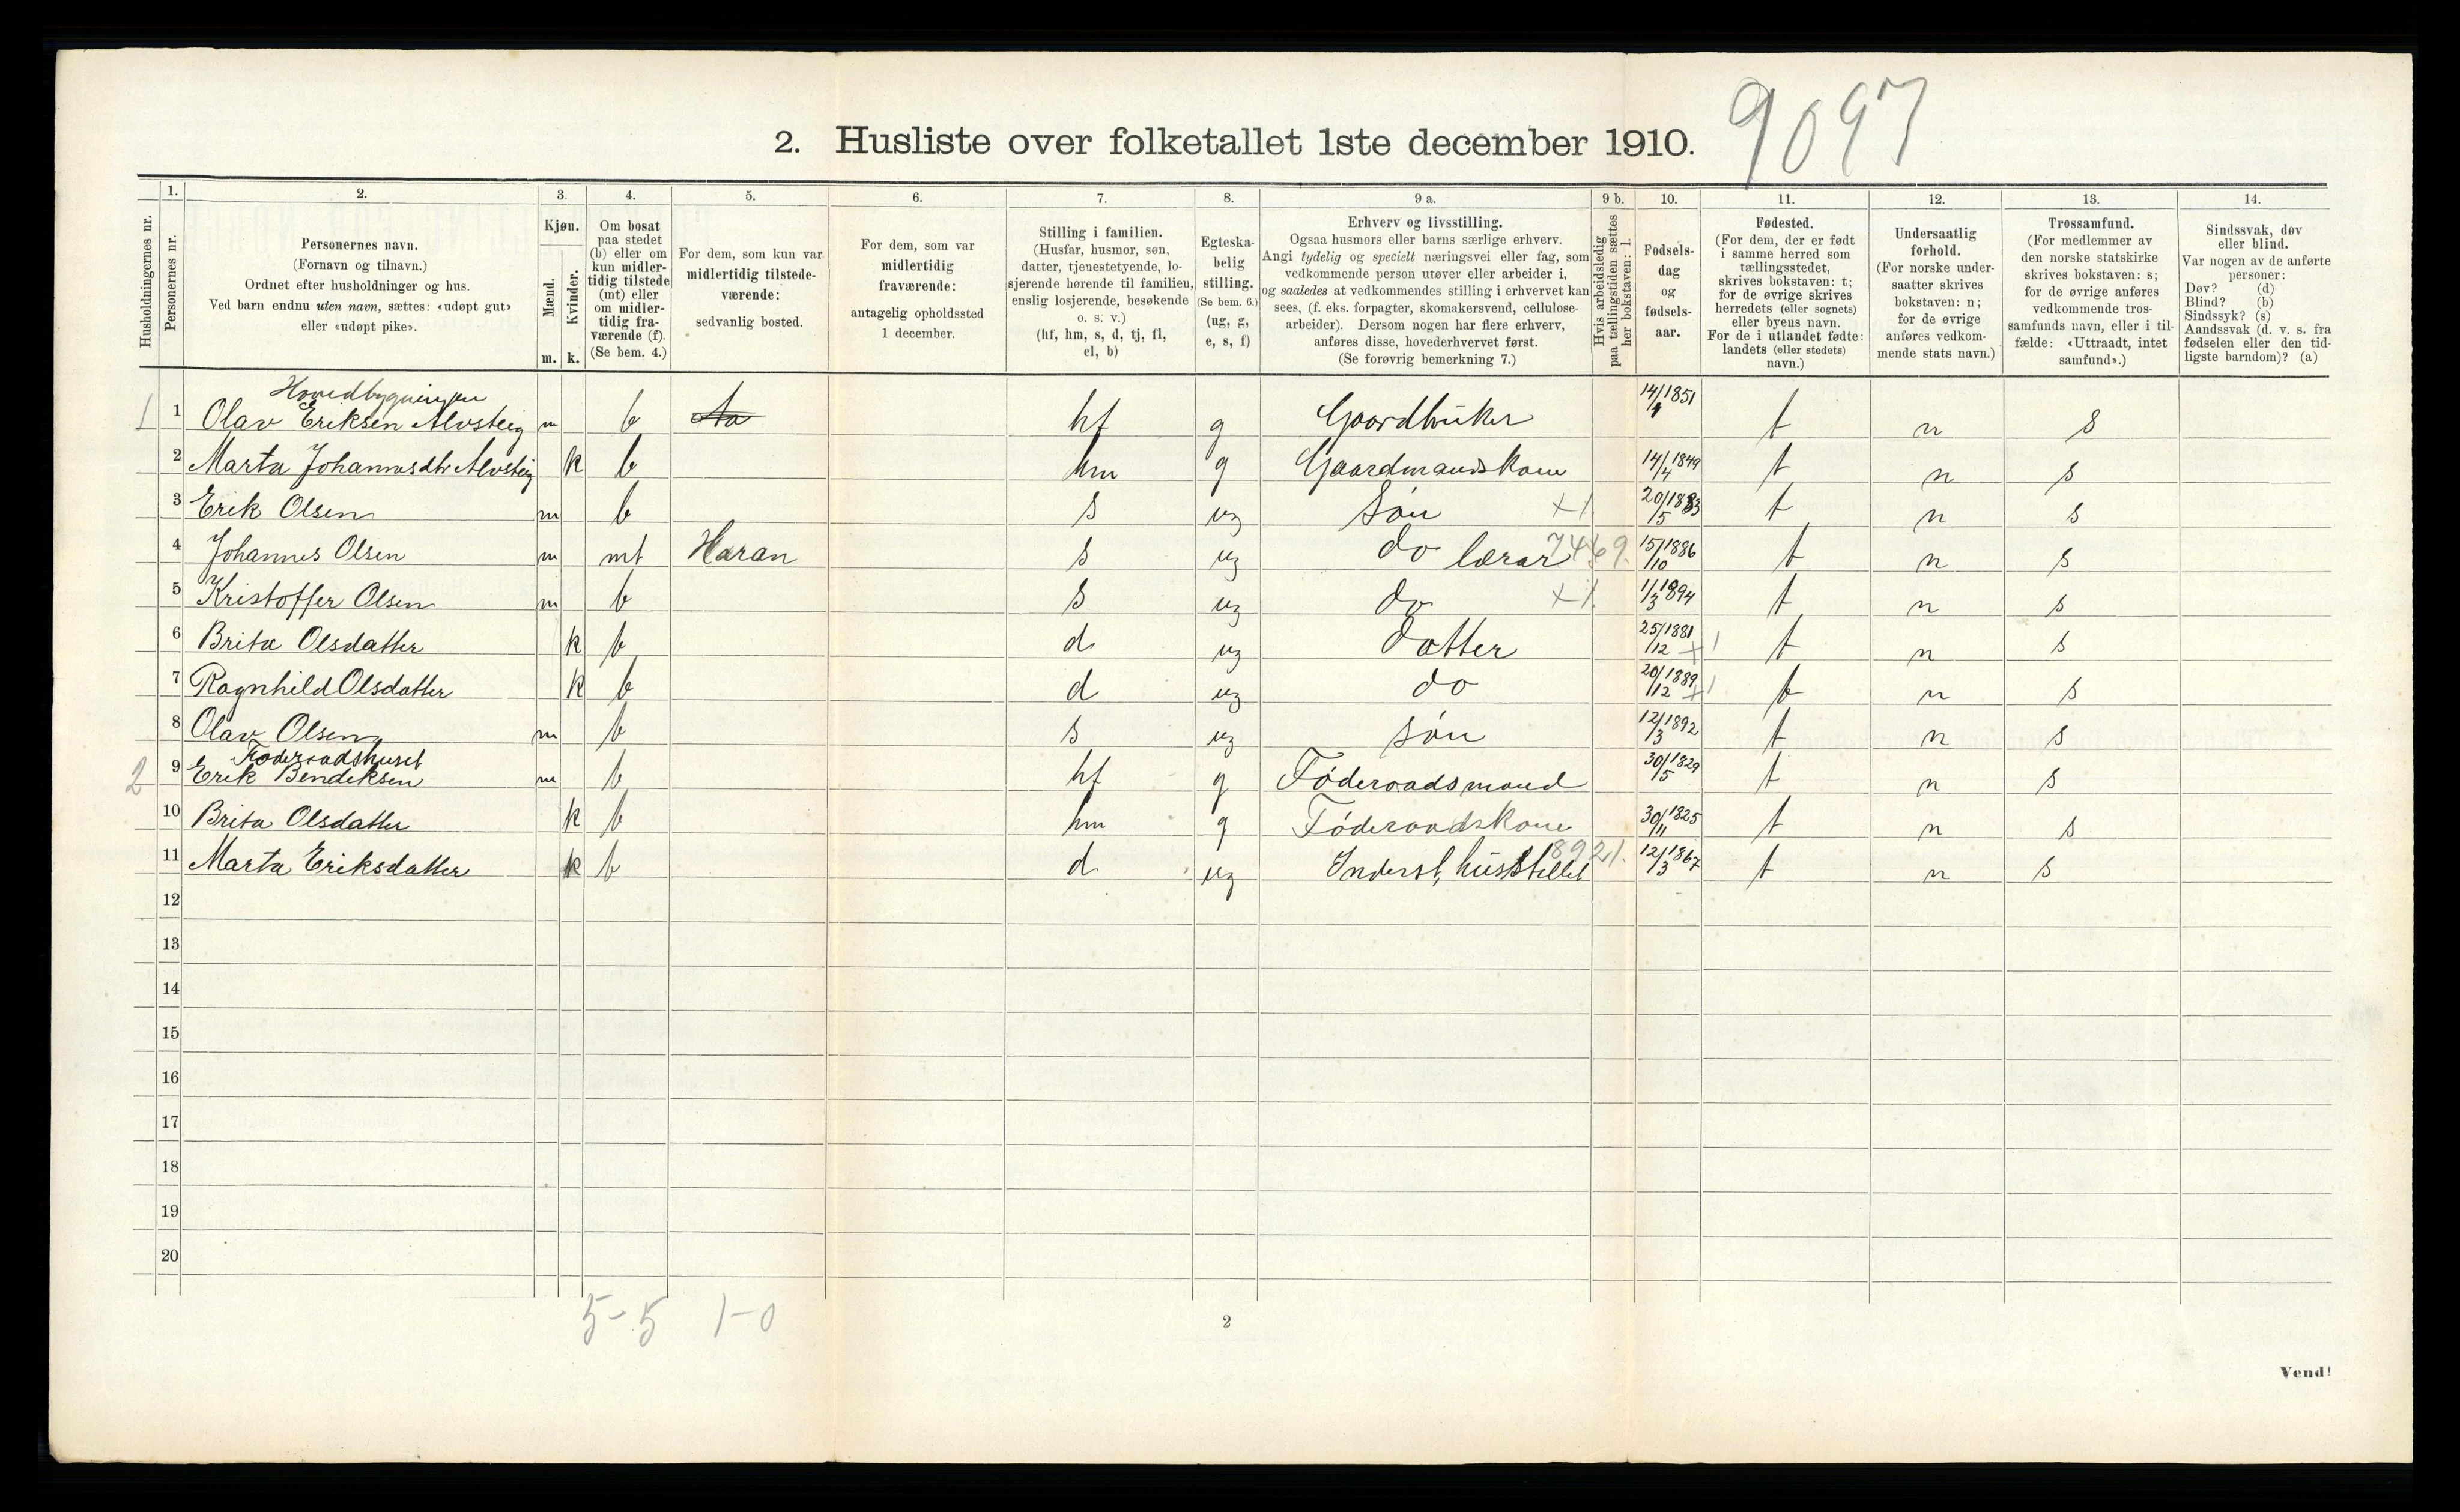 9097
2. Husliste over folketallet 1ste december 1910.
Husholdningernes nr.
1.
Personernes nr.
2.
Personernes navn.
(Fornavn og tilnavn.)
Ordnet efter husholdninger og hus.
Ved barn endnu uten navn, sættes: «udøpt gut»
eller «udøpt pike».
3.
Kjøn.
Mænd.
Kvinder.
m. k.
4.
Om bosat
paa stedet
(b) eller om
kun midler-
tidig tilstede
(mt) eller
om midler-
tidig fra-
værende (f).
(Se bem. 4.)
5.
For dem, som kun var
midlertidig tilstede-
værende:
sedvanlig bosted.
6.
For dem, som var
midlertidig
fraværende:
antagelig opholdssted
1 december.
7.
Stilling i familien.
(Husfar, husmor, søn,
datter, tjenestetyende, lo-
sjerende hørende til familien,
enslig losjerende, besøkende
o. s. v.)
(hf, hm, s, d, tj, fl,
el, b)
8.
Egteska-
belig
stilling.
(Se bem. 6.)
(ug, g,
e, s, f)
9 a.
Erhverv og livsstilling.
Ogsaa husmors eller barns særlige erhverv.
Angi tydelig og specielt næringsvei eller fag, som
vedkommende person utøver eller arbeider i,
og saaledes at vedkommendes stilling i erhvervet kan
sees, (f. eks. forpagter, skomakersvend, cellulose-
arbeider). Dersom nogen har flere erhverv,
anføres disse, hovederhvervet først.
(Se forøvrig bemerkning 7.)
9 b.
Hvis arbeidsledig
paa tællingstiden sættes
her bokstaven: l.
10.
Fødsels-
dag
og
fødsels-
aar.
11.
Fødested.
(For dem, der er født
i samme herred som
tællingsstedet,
skrives bokstaven: t;
for de øvrige skrives
herredets (eller sognets)
eller byens navn.
For de i utlandet fødte:
landets (eller stedets)
navn.)
12.
Undersaatlig
forhold.
(For norske under-
saatter skrives
bokstaven: n;
for de øvrige
anføres vedkom-
mende stats navn.)
13.
Trossamfund.
(For medlemmer av
den norske statskirke
skrives bokstaven: s;
for de øvrige anføres
vedkommende tros-
samfunds navn, eller i til-
fælde: «Uttraadt, intet
samfund».)
14.
Sindssvak, døv
eller blind.
Var nogen av de anførte
personer:
Døv? (d)
Blind? (b)
Sindssyk? (s)
Aandssvak (d. v. s. fra
fødselen eller den tid-
ligste barndom)? (a)
Hovedbygningen
1 1 Olav Eriksen Alvsteig m b hf g Gaardbruker 14/4 1851 t n s
2 Marta Johannesdtr Alvsteig k b hm g Gaardmandskone 14/4 1849 t n s
3 Erik Olsen m b s ug Søn x 1. 20/5 1883 t n s
4 Johannes Olsen m mt Haran s ug do lærar 7469. 15/10 1886 t n s
5 Kristoffer Olsen m b s ug do x 1. 1/3 1894 t n s
6 Brita Olsdatter k b d ug Datter 25/12 1881 x 1 t n s
7 Ragnhild Olsdatter k b d ug do 20/12 1889 x 1 t n s
8 Olav Olsen m b s ug søn 12/3 1892 t n s
Føderaadshuset
2 9 Erik Bendiksen m b hf g Føderaadsmand 30/5 1829 t n s
10 Brita Olsdatter k b hm g Føderaadskone 30/11 1825 t n s
11 Marta Eriksdatter k b d ug Inderst, husstellet 8921. 12/3 1867 t n s
12
13
14
15
16
17
18
19
20
5-5 1-0
2
Vend!